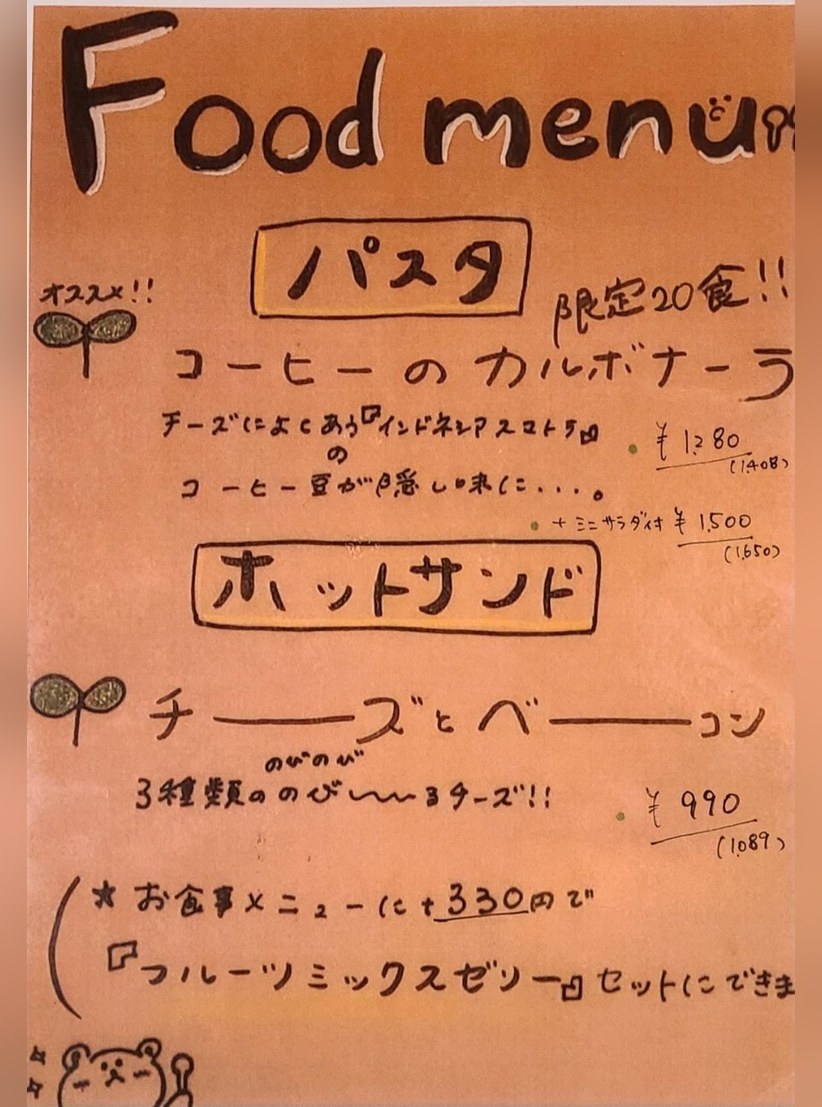 Food menu
パスタ
オススメ!!
限定20食!!
コーヒーのカルボナーラ
チーズによくあう『インドネシアスマトラ』
の
コーヒー豆が隠し味に・・・。
¥1,280
(1,408)
+ミニサラダ付 ¥1,500
(1,650)
ホットサンド
チーズとベーコン
のびのび
3種類ののび〜〜るチーズ!!
¥990
(1,089)
★お食事メニューに+330円で
『フルーツミックスゼリー』セットにできま